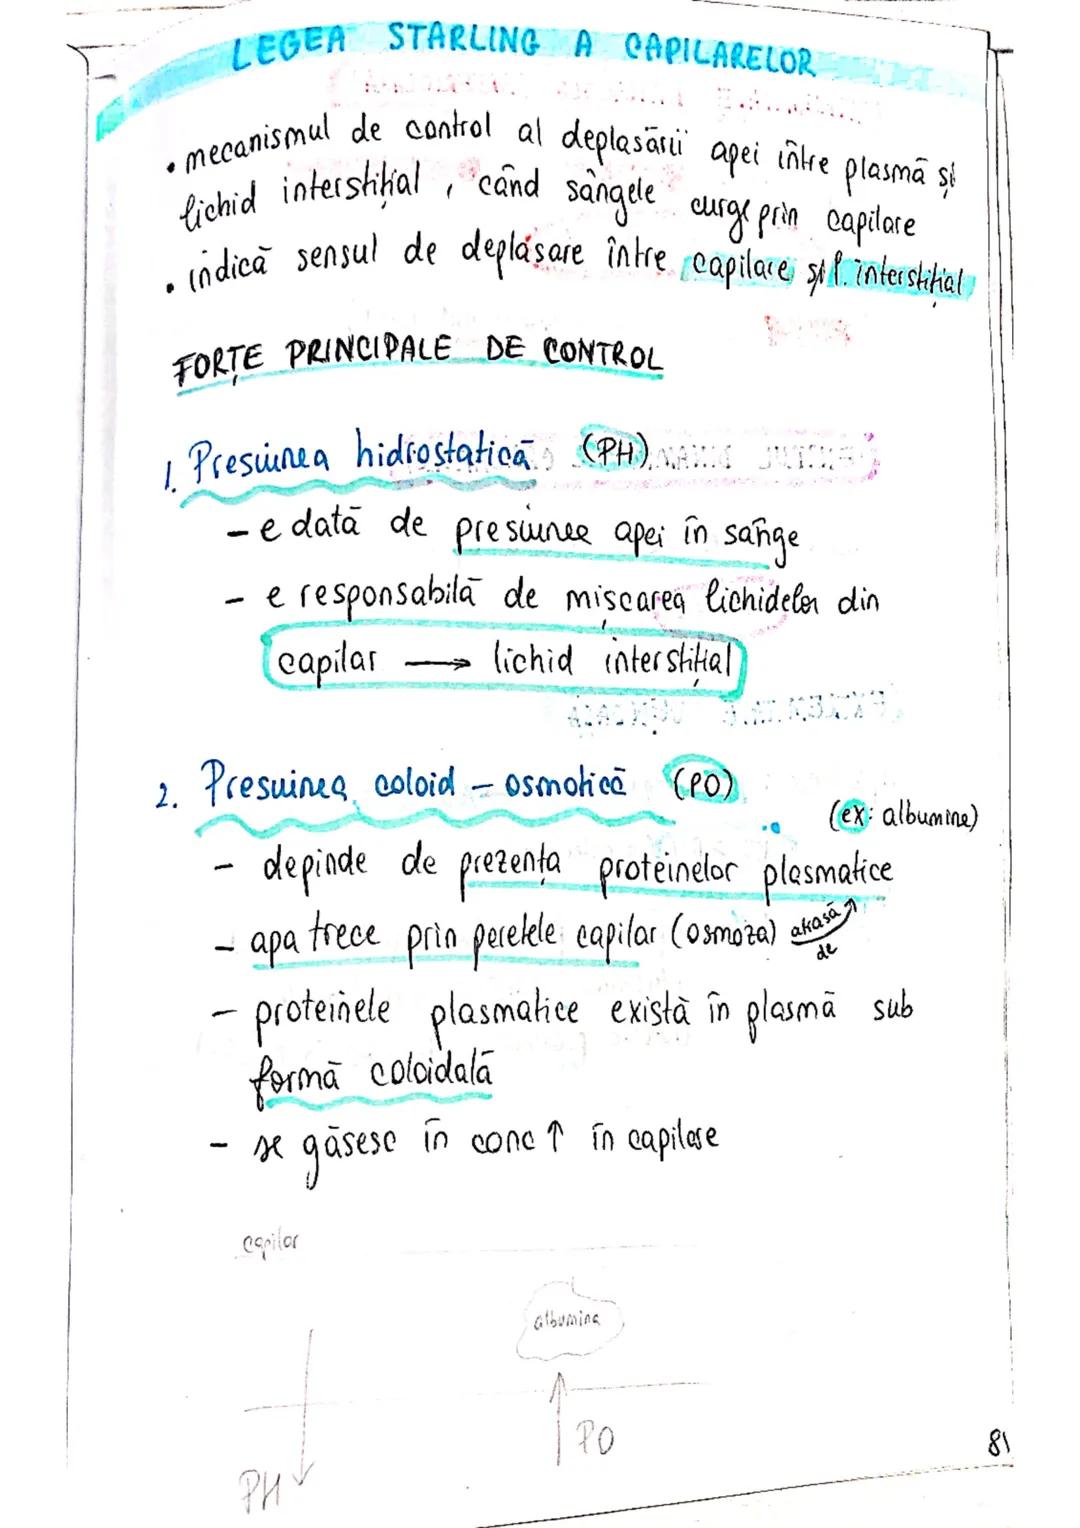 LEGEA STARLING A CAPILARELOR
• mecanismul de control al deplasării apei între plasmă și
lichid interstițial, când sângele curge prin capilare
• indică sensul de deplasare între capilare și l. interstițial
FORȚE PRINCIPALE DE CONTROL
1. Presiunea hidrostatică (PH)
- e dată de presiunee apei în sânge
- e responsabilă de mișcarea lichidelor din
capilar → lichid interstițial
2. Presuinea coloid - osmotică (PO)
(ex: albumine)
- depinde de prezența proteinelor plasmatice
- apa trece prin peretele capilar (osmoza) atrasă
de
- proteinele plasmatice există în plasmă sub
formă coloidală
- se găsesc în conc ↑ în capilare
capilar
albumina
PO
PH
81